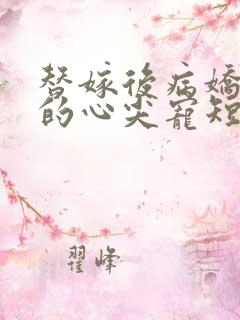 替嫁後病嬌
的心尖寵短
翟峰